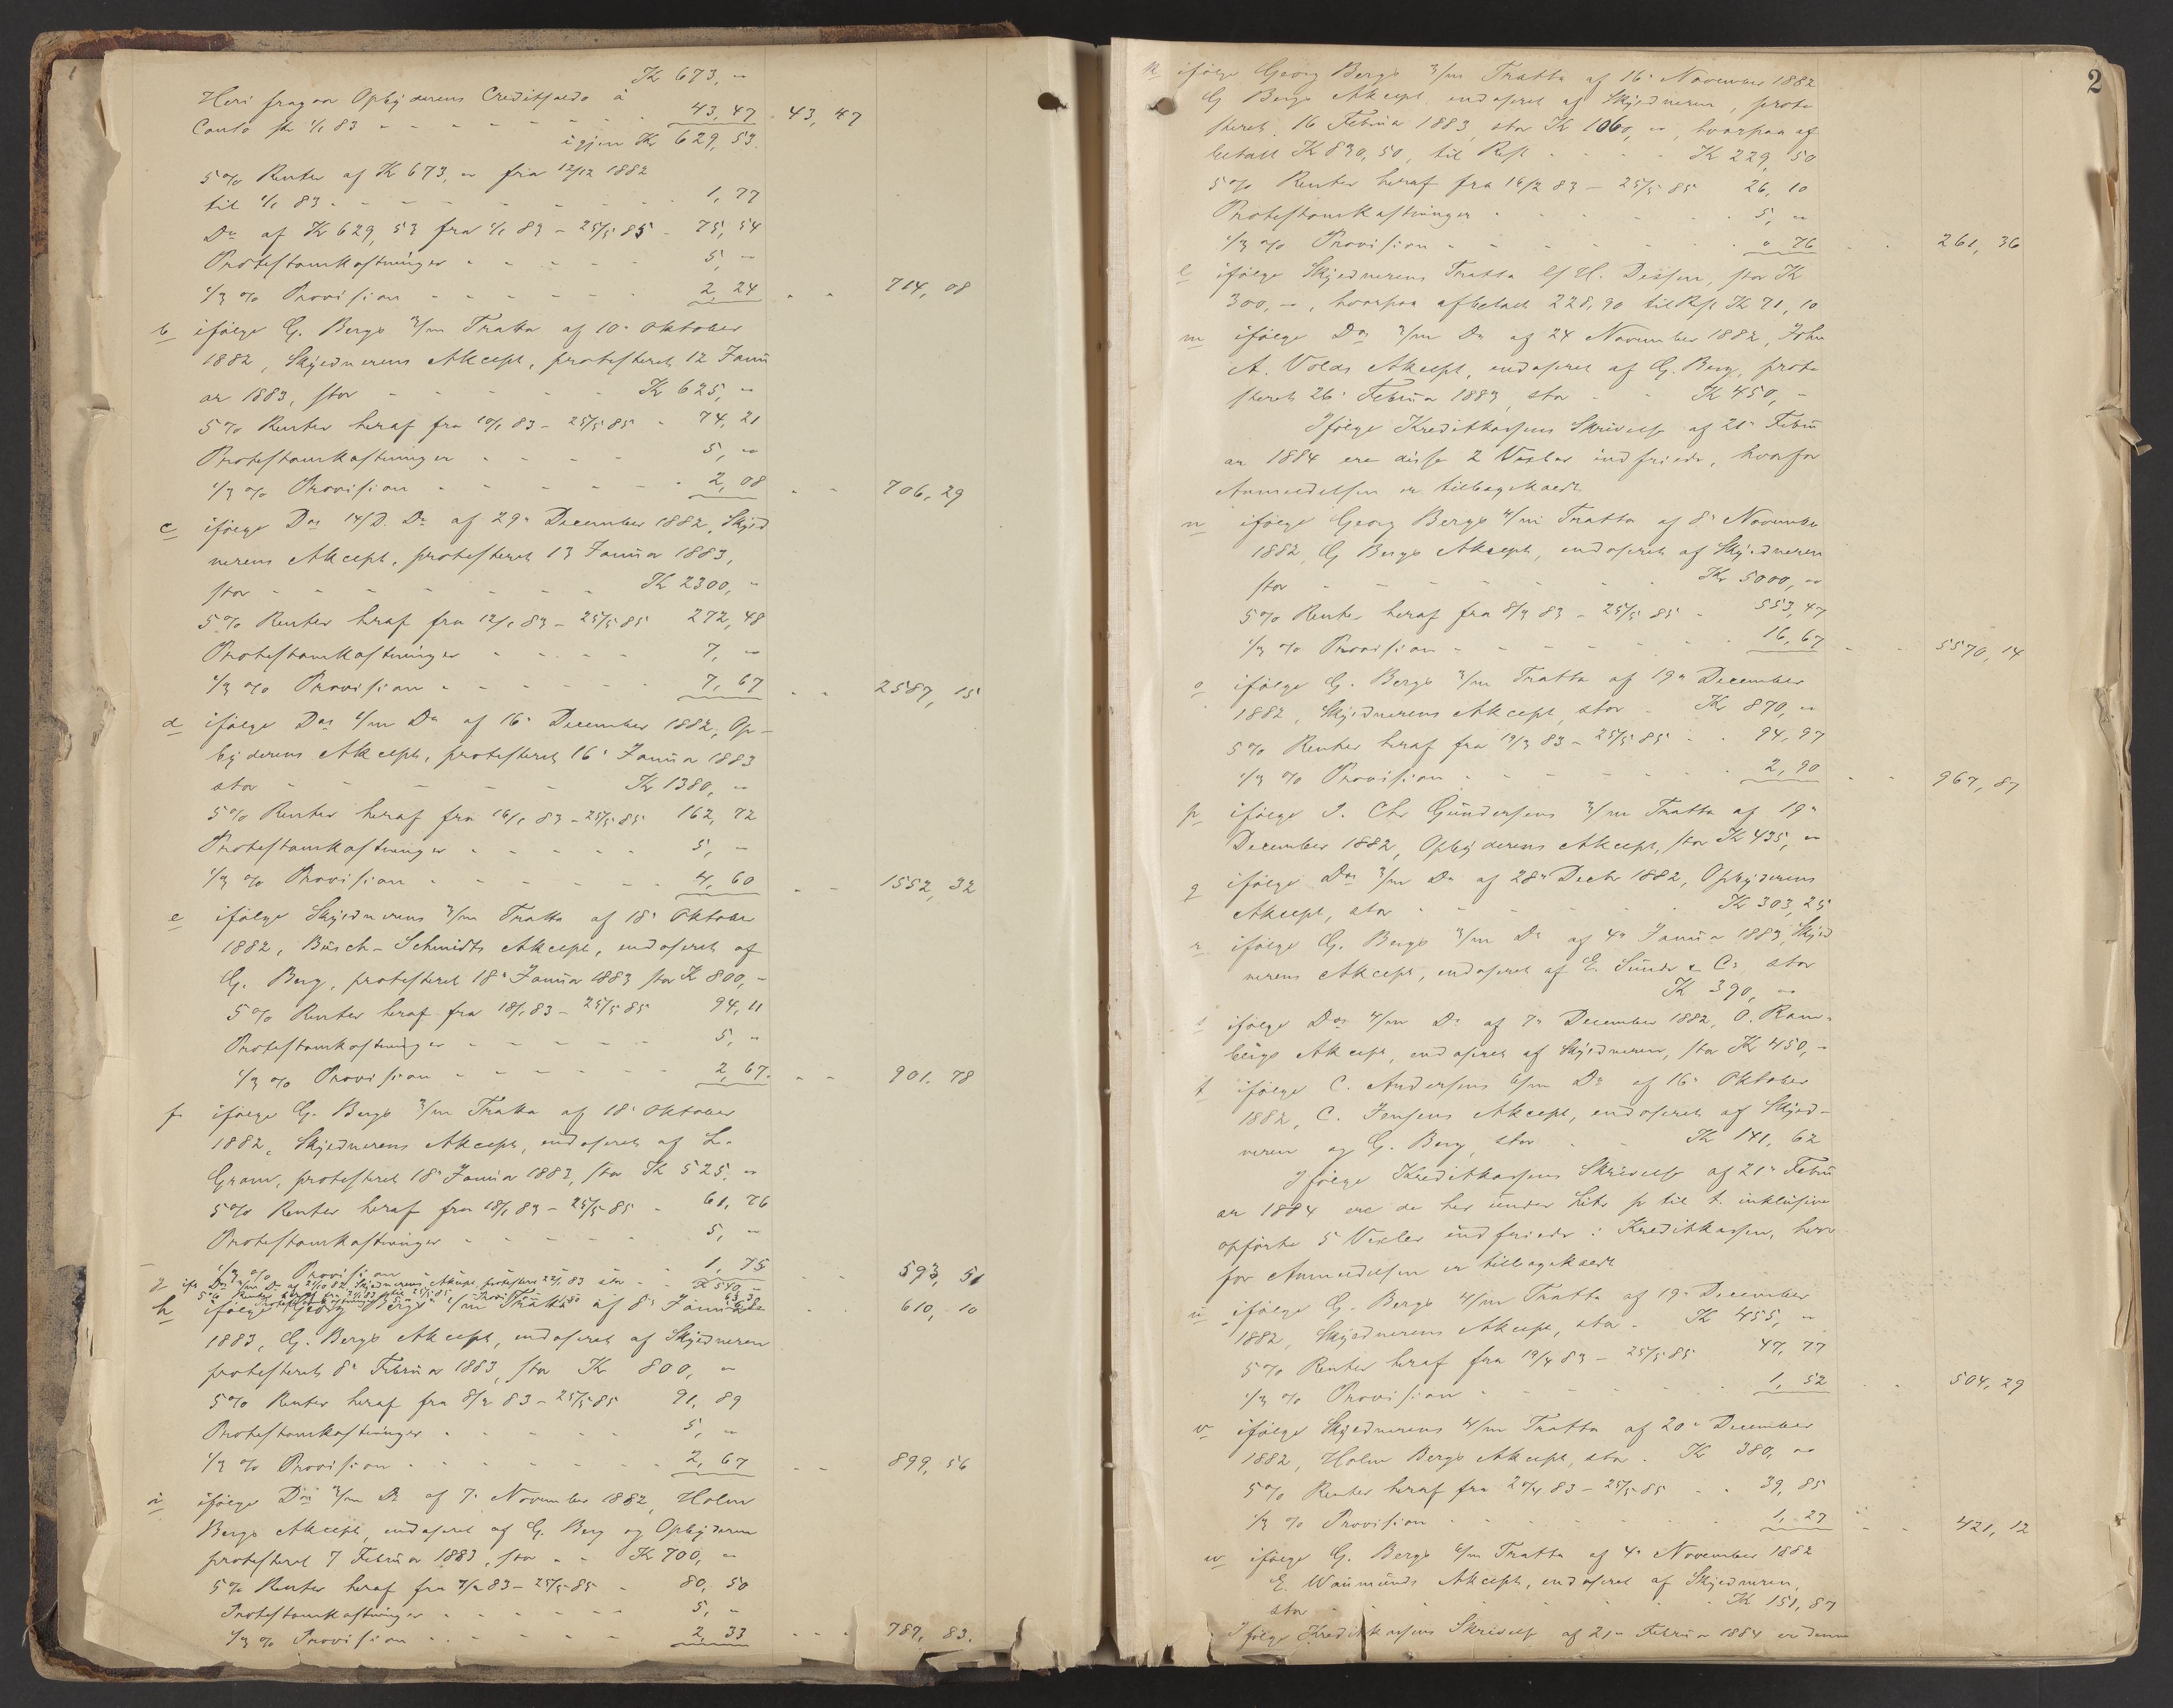 Kr 673, "
Heri fragaar Opbyderens Creditsaldo à
Conto pr 1/1 83 - - - - - - - 43, 47 43, 47
igjen Kr 629, 53.
5 % Renter af Kr 673, " fra 12/12 1882
til 1/1 83 - - - - - - - 1, 77
Do af Kr 629, 53 fra 1/1 83 - 25/5 85 - 75, 54
Protestomkostninger - - - - - 5, "
1/3 % Provision - - - - - - 2, 24 - - 714, 08
b ifølge G. Bergs 3/m Tratta af 10' Oktober
1882, Skyldnerens Akcept, protesteret 12 Janu
ar 1883, stor - - - - - Kr 625, "
5 % Renter heraf fra 10/1 83 - 25/5 85 - 74, 21
Protestomkostninger - - - - 5, "
1/3 % Provision - - - - - - 2, 08 - - 706, 29
c ifølge Ds 14/D. Do af 29' December 1882, Skyld
nerens Akcept, protesteret 13 Januar 1883,
stor - - - - - - - Kr 2300, "
5 % Renter heraf fra 12/1 83 - 25/5 85 272, 48
Protestomkostninger - - - - - 7, "
1/3 % Provision - - - - - - 7, 67 - - 2587, 15
d ifølge Ds 1/m Do af 16' December 1882, Op-
byderens Akcept, protesteret 16' Januar 1883
stor - - - - - Kr 1380, "
5 % Renter heraf fra 16/1 83 - 25/5 85 162, 72
Protestomkostninger - - - - - 5, "
1/3 % Provision - - - - - - 4, 60 - - 1552, 32
e ifølge Skyldnerens 3/m Tratta af 18' Oktober
1882, Busch-Schmidts Akcept, endosseret af
G. Berg, protesteret 18' Januar 1883 stor Kr 800, -
5 % Renter heraf fra 18/1 83 - 25/5 85 94, 11
Protestomkostninger - - - - - 5, "
1/3 % Provision - - - - - - 2, 67. - - 901. 78
f ifølge G. Bergs 3/m Tratta af 18' Oktober
1882, Skyldnerens Akcept, endosseret af L.
Gram, protesteret 18' Januar 1883, stor Kr 525. "
5 % Renter heraf fra 18/1 83 - 25/5 85 - 61, 76
Protestomkostninger - - - - - 5, "
1/3 % Provision - - - - - - 1, 75 - - 593, 51
g ifø Ds 3/m Do af 21/10 82 Skyldnerens Akcept protesteret 22/1 83 stor - - Kr 540 -
5 % Renter heraf fra 21/1 83 til 25/5 85 63, 30
Protestomkostninger 5 " Provision 1 80 - - 610, 10
h ifølge Georg Bergs 1/m Tratta af 8' Januar
1883, G. Bergs Akcept, endosseret af Skyldneren
protesteret 8' Februar 1883, stor Kr 800, "
5 % Renter heraf fra 8/2 83 - 25/5 85 91, 89
Protestomkostninger - - - - - 5, "
1/3 % Provision - - - - - - 2, 67 - - 899, 56
i ifølge Ds 3/m Do af 7' November 1882, Holm
Bergs Akcept, endosseret af G. Berg og Opbyderen
protesteret 7 Februar 1883, stor - - Kr 700, "
5 % Renter heraf fra 7/2 83 - 25/5 85 - 80, 50
Protestomkostninger - - - - - - 5, "
1/3 % Provision - - - - - - 2, 33 - - - 787, 83.
2
k ifølge Georg Bergs 3/m Tratta af 16' November 1882
G Bergs Akcept endosseret af Skyldneren, prote
steret 16 Februar 1883 stor Kr 1060, ", hvorpaa af
betalt Kr 830, 50, til Rest - - - - Kr 229, 50
5 % Renter heraf fra 16/2 83 - 25/5 85 26, 10
Protestomkostninger - - - - - - 5, "
1/3 % Provision - - - - - - - " 76 - - 261, 36
l ifølge Skyldnerens Tratta p/ H. Dessen, stor Kr
300, ", hvorpaa afbetalt 228, 90 til Rest Kr 71, 10
m ifølge Ds 3/m Do af 24 November 1882, John
A. Volds Akcept, endosseret af G. Berg, prote
steret 26' Februar 1883 stor - - Kr 450, -
Ifølge Kreditkassens Skrivelse af 21' Febru
ar 1884 ere disse 2 Vexler indfriede, hvorfor
Anmeldelsen er tilbagekaldt
n ifølge Georg Bergs 4/m Tratta af 8' November
1882, G Bergs Akcept, endosseret af Skyldneren
stor - - - - - - - Kr 5000, "
5 % Renter heraf fra 8/3 83 - 25/5 85 - 553, 47
1/3 % Provision - - - - - - - 16, 67 - - 5570, 14
o ifølge G. Bergs 3/m Tratta af 19' December
1882, Skyldnerens Akcept, stor - Kr 870, "
5 % Renter heraf fra 19/3 83 - 25/5 85 - - 94, 97
1/3 % Provision - - - - - - - 2, 90 - - 967, 87
p ifølge J. Chr Gundersens 3/m Tratta af 19'
December 1882, Opbyderens Akcept, stor Kr 435, "
q ifølge Ds 3/m Do af 28' Decbr 1882, Opbyderens
Akcept, stor - - - - - - Kr 303, 25
r ifølge G. Bergs 3/m Do af 4' Januar 1883, Skyld
nerens Akcept, endosseret af E. Sunde & Co, stor
Kr 390, "
s ifølge Ds 4/m Do af 7' December 1882, O. Ram-
bergs Akcept, endosseret af Skyldneren, stor Kr 450, -
t ifølge C. Andersens 6/m Do af 16' Oktober
1882, C. Jensens Akcept, endosseret af Skyld-
neren og G. Berg, stor - - Kr 141, 62
Ifølge Kreditkassens Skrivelse af 21' Febru
ar 1884 ere de her under Litr p til t. inklusive
opførte 5 Vexler indfriede i Kreditkassen, hvor
for Anmeldelsen er tilbagekaldt
u ifølge G. Bergs 4/m Tratta af 19' December
1882, Skyldnerens Akcept, stor - Kr 455, "
5 % Renter heraf fra 19/4 83 - 25/5 85 47, 77
1/3 % Provision - - - - - - - 1, 52 - - 504, 29
v ifølge Skyldnerens 4/m Tratta af 20' December
1882, Holm Bergs Akcept, stor - Kr 380, "
5 % Renter heraf fra 20/4 83 - 25/5 85 - - 39, 85
1/3 % Provision - - - - - - - 1, 27 - - 421, 12
w ifølge G. Bergs 6/m Tratta af 4' November 1882
E. Akcept, endosseret af Skyldneren,
stor - - - - - - - Kr 151, 87
Ifølge Kreditkassens Skrivelse af 21' Februar 1884 er denne